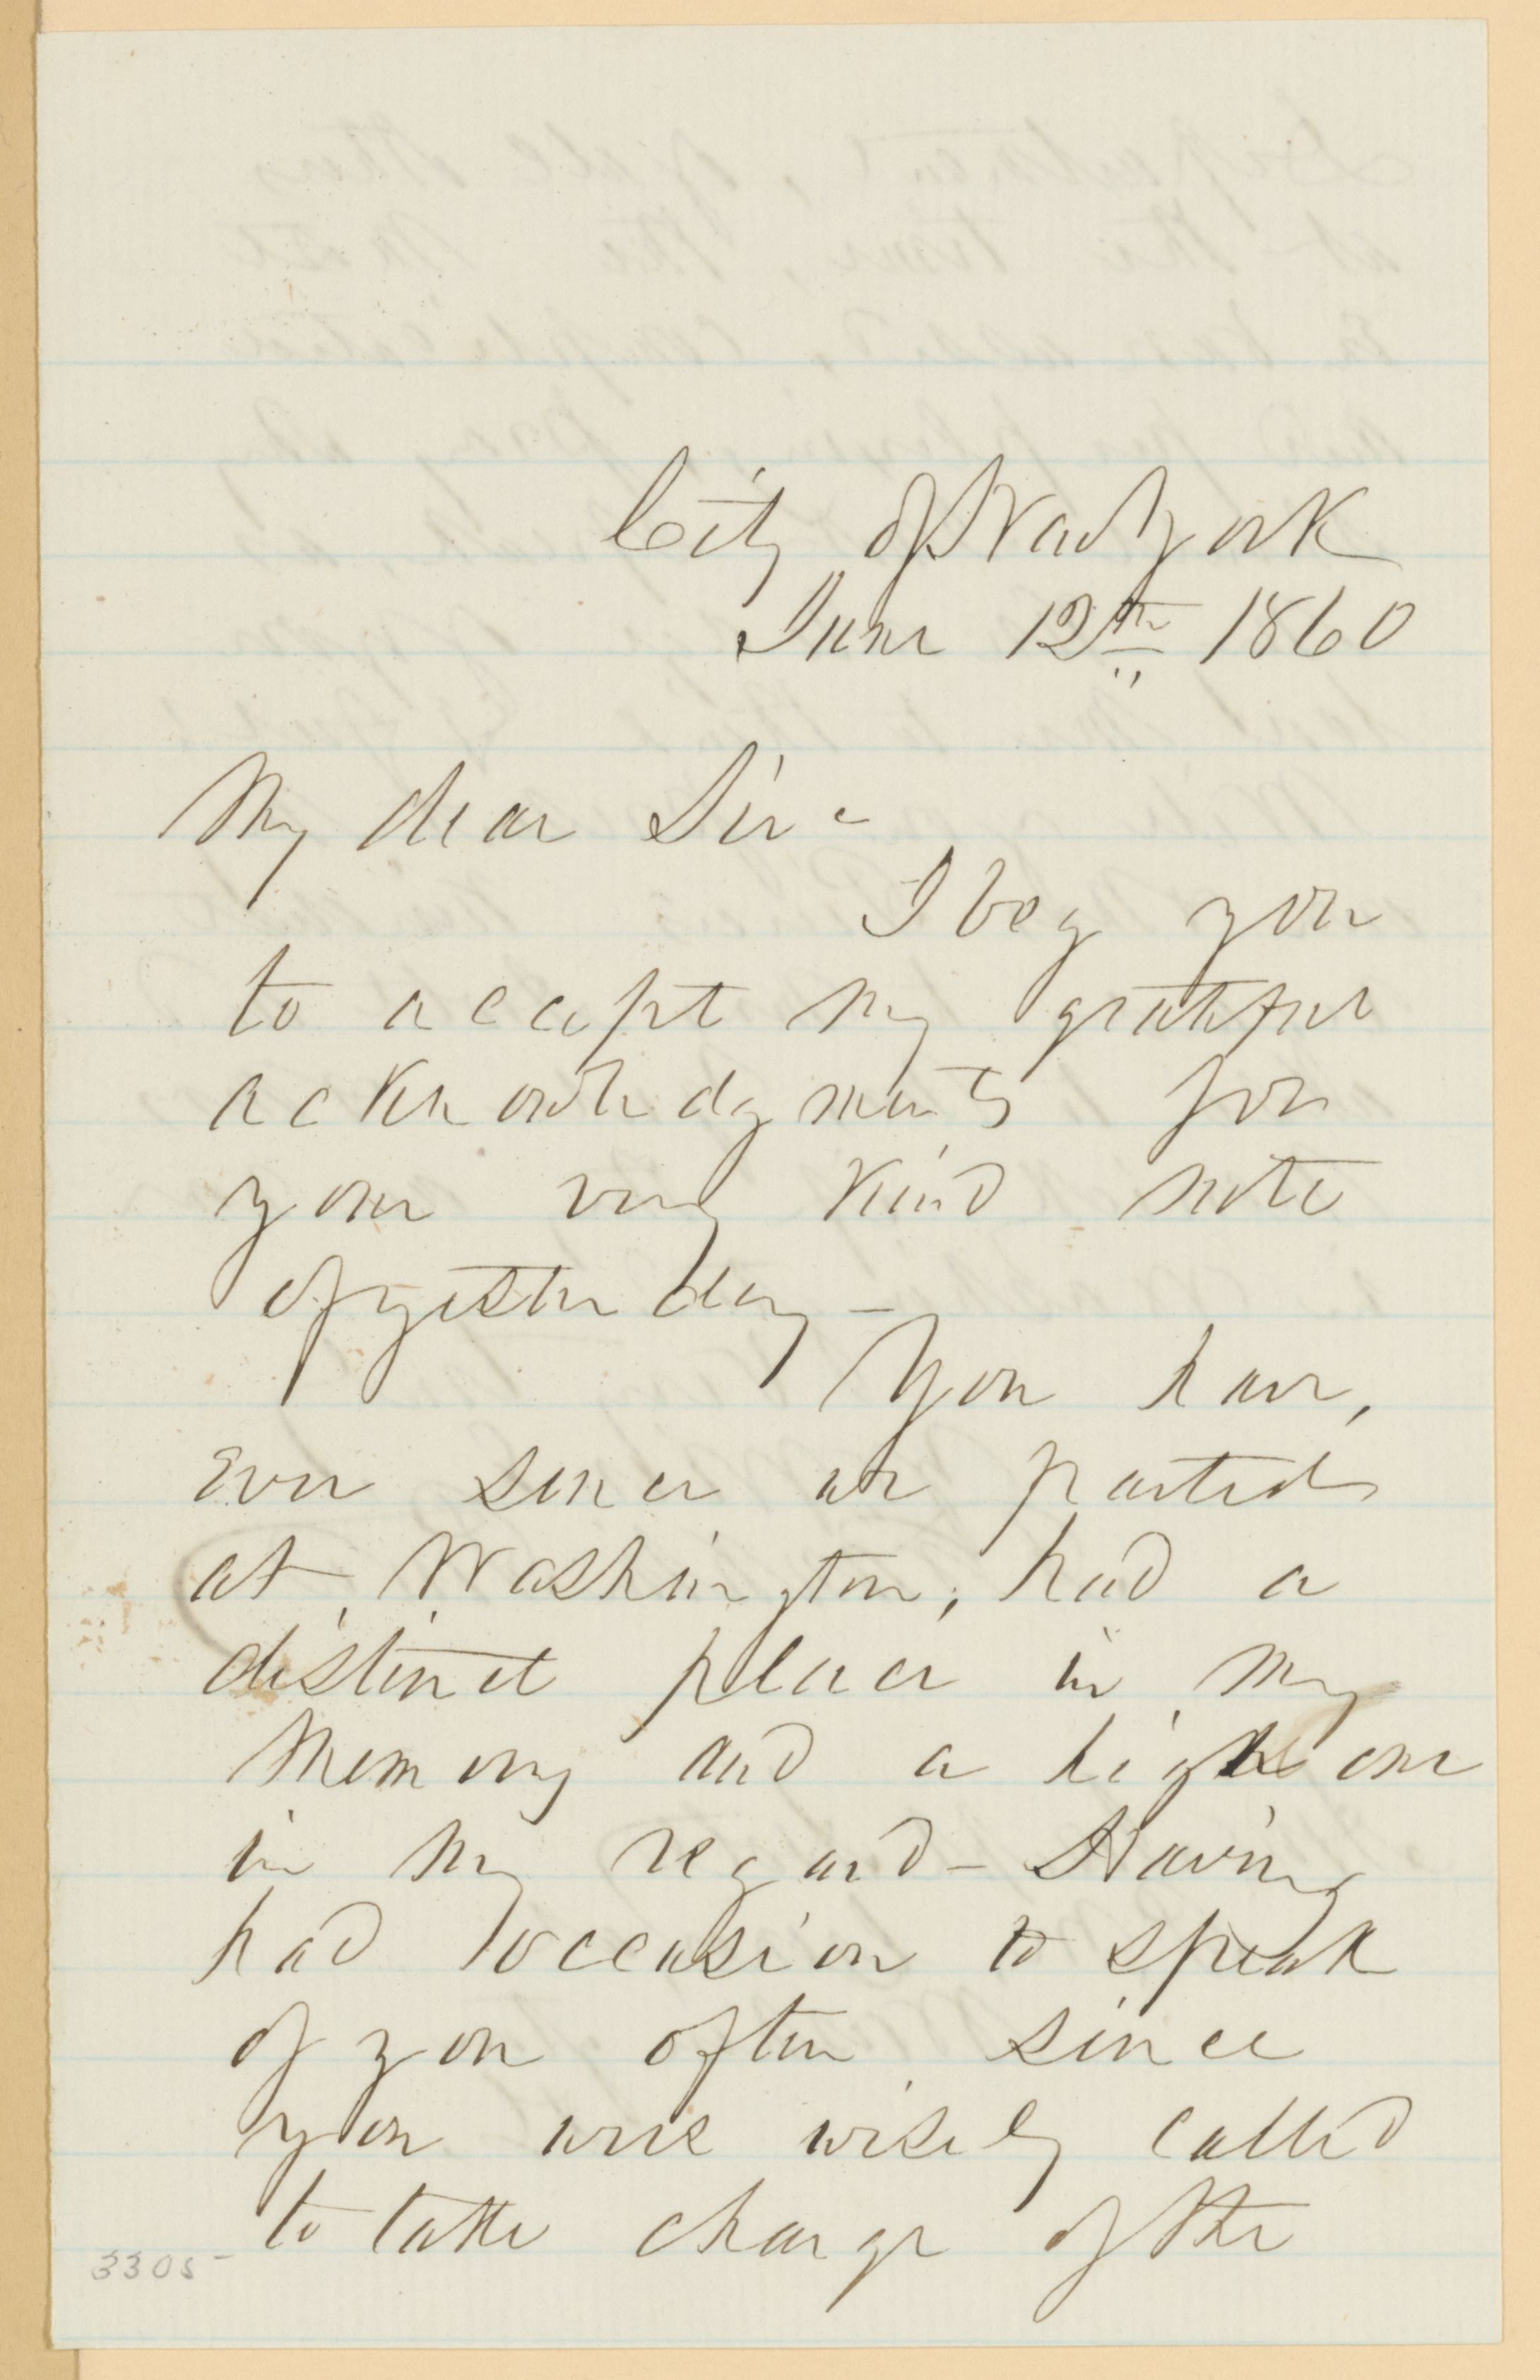 City of New York
June 12th 1860
My dear Sir -
I beg you
to accept my grateful
acknowledgments for
your very kind note
of yesterday -
You have,
ever since we parted
at Washington, had a
distinct place in my
memory and a high one
in my regard - Having
had occasion to speak
of you often since
you were wisely called
to take charge of the
3305-